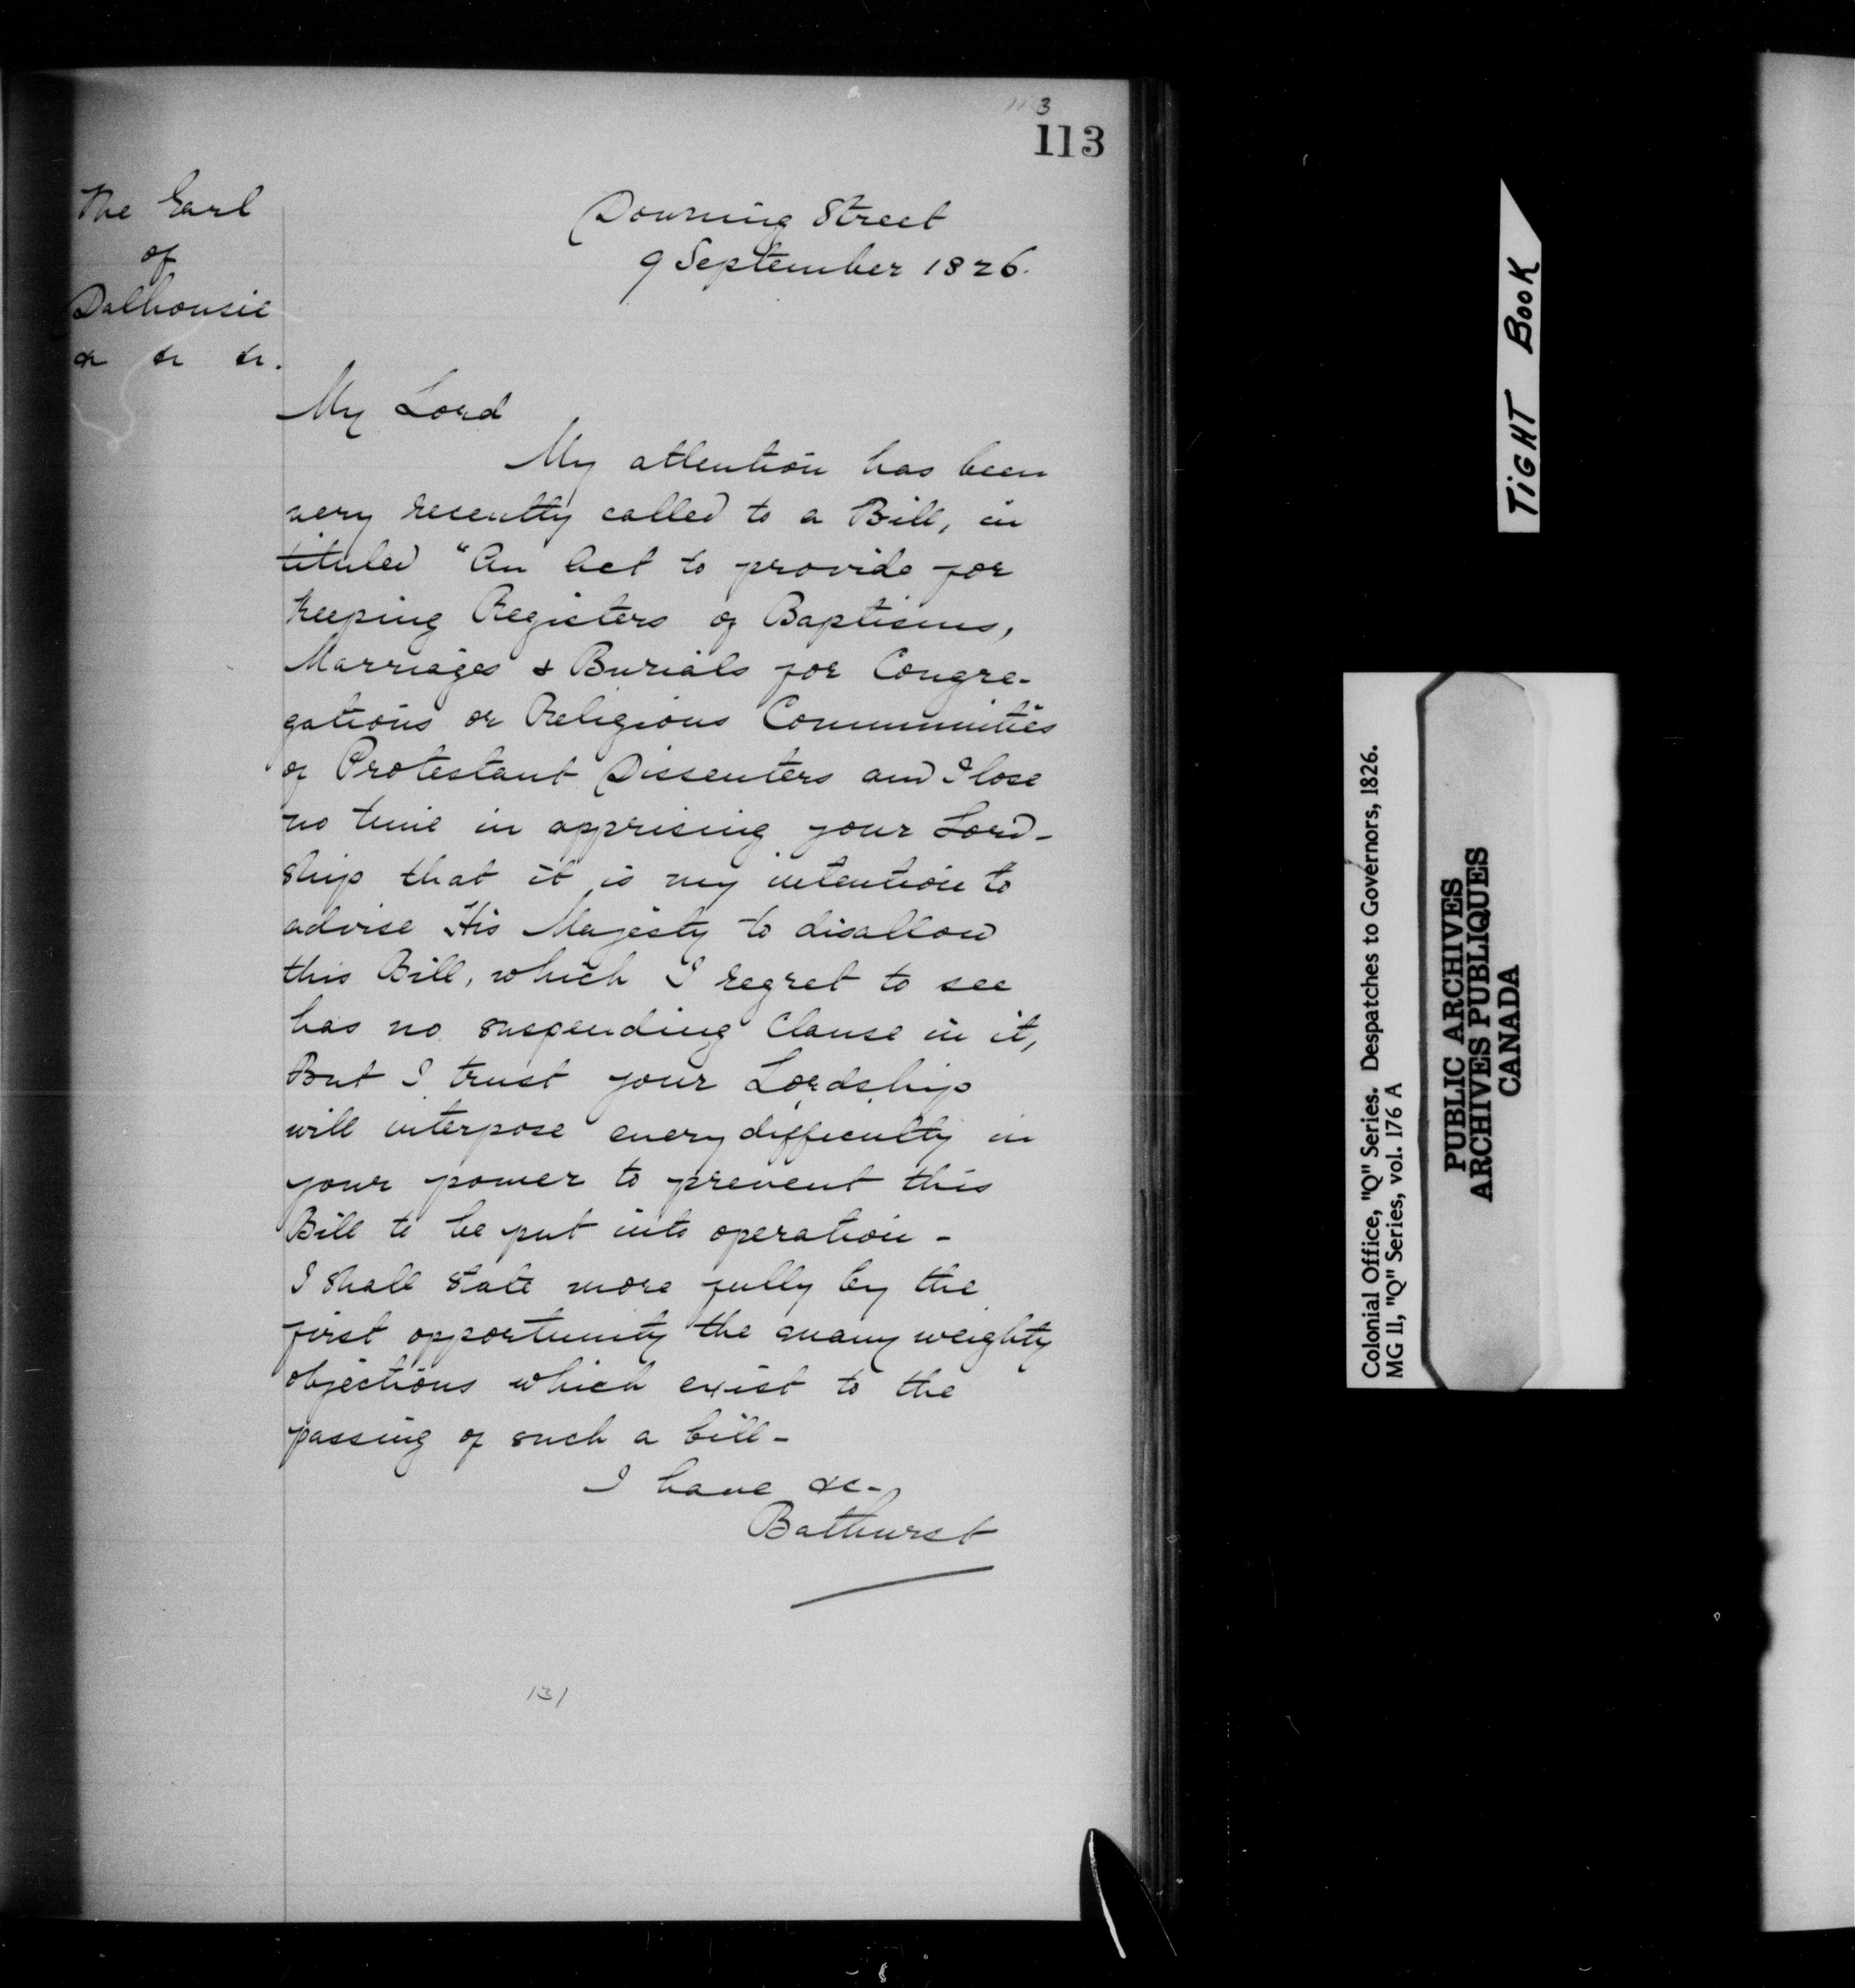 3
113
The Earl
of
Dalhousie
&c &c &c.
Downing Street
9 September 1826.
My Lord
My attention has been
very recently called to a Bill, in
tituled "An Act to provide for
keeping Registers of Baptisms,
Marriages & Burials for Congre-
gations or Religious Communities
of Protestant Dissenters and I lose
no time in apprising your Lord-
ship that it is my intention to
advise His Majesty to disallow
this Bill, which I regret to see
has no suspending Clause in it,
But I trust your Lordship
will interpose every difficulty in
your power to prevent this
Bill to be put into operation -
I shall state more fully by the
first opportunity the many weighty
objections which exist to the
passing of such a bill -
I have &c -
Bathurst
131
TIGHT BOOK
Colonial Office, "Q" Series. Despatches to Governors, 1826.
MG 11, "Q" Series, vol. 176 A
PUBLIC ARCHIVES
ARCHIVES PUBLIQUES
CANADA